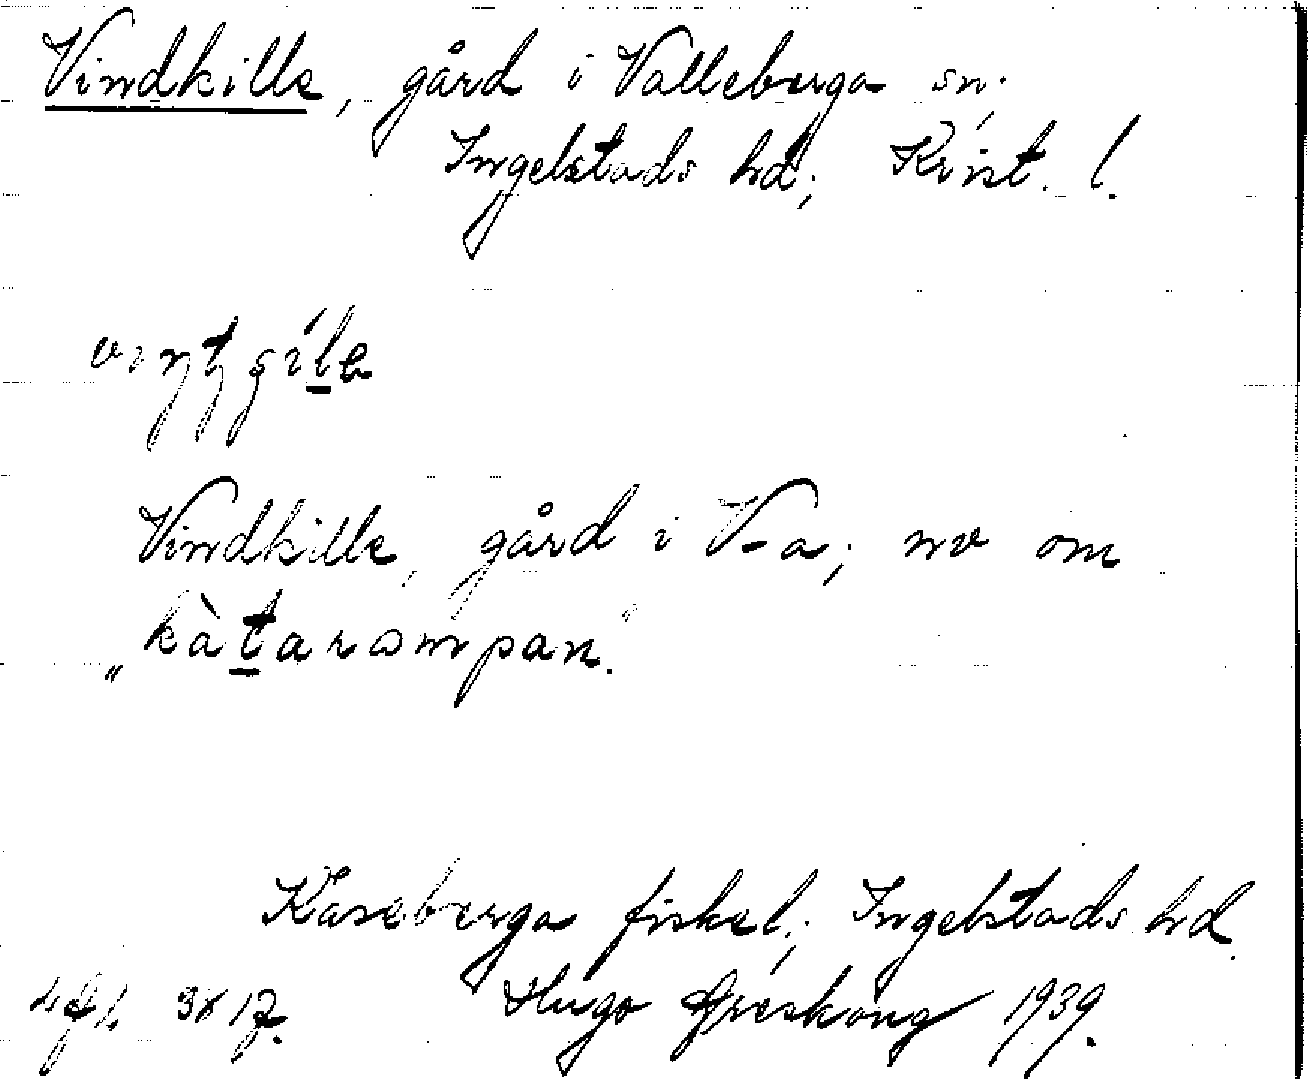 Vindkille, gård i Valleberga sn.
Ingelstads hd; Krist. l.
Vindkille, gård i V-a; nv om
„kàtarampan."
Kåseberga fiskel.; Ingelstads hd
Hugo Areskoug 1939.